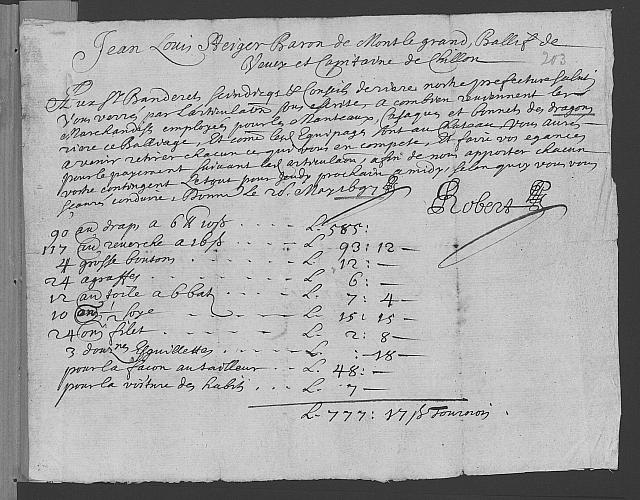 Jean Louis Steiger Baron de Mont le grand, Ballif de
Vevex et Capitaine de Chillon
203
Aux Srs Banderet, Scindiegs & Conseils de riere nostre prefecture Salut
Vous verres par Larticulation sous escritte, a combien reviennent les
Marchandises employees pour les Manteaux, Casaques et bonnets des dragons
riere ce Balliage, Et come les Equipages sont au Chateau, Vous aures
a venir retirer chacun ce qui vous en compete, Et faire vos egances
pour le payement suivant les articulon, afin de nous apporter chacun
vostre contingent Le tout pour Jeudy prochain a midy, selon quoy vous vous
scaures conduire, Donné le 26. May 1697
Robert
90 au draps a 6 lt 10 ß L. 585:
117 au reverche a 16 ß L. 93: 12 —
4 grosse boutons L. 12: —
24 agraffes L. 6: —
12 au toile a 6 batz L. 7: 4 —
10 soye L. 15: 15 —
24 on filet L. 2: 8 —
3 douznes Esguillettes L. : 18 —
pour la façon au tailleur L. 48: —
pour la voiture des habits L. 7 —
L. 777: 17 ß Tournois.